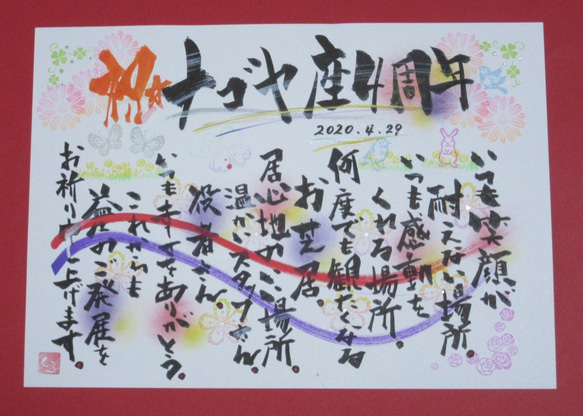 祝 ナゴヤ座4周年
2020.4.29
いつも笑顔が
耐えない場所。
いつも感動を
くれる場所！
何度でも観たくなる
お芝居。
居心地のいい場所。
温かいスタッフさん！
役者さん。
いつもすてきをありがとう。
これからも
益々のご発展を
お祈り申し上げます。